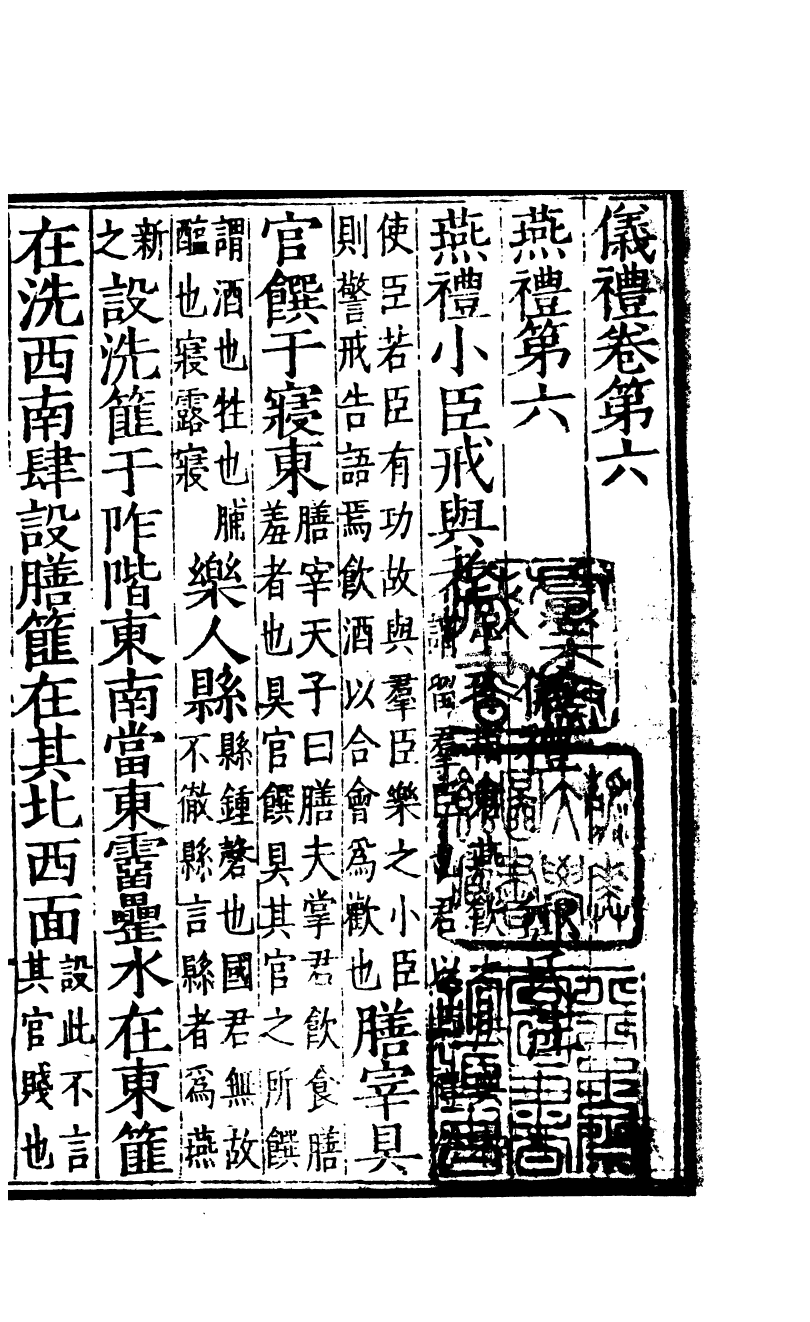 儀禮卷第六
燕禮第六
燕禮小臣戒與者
謂留羣臣也君以燕禮
使臣若臣有功故與羣臣樂之小臣
則警戒告語焉飲酒以合會爲歡也
膳宰具
官饌于寢東
膳宰天子曰膳夫掌君飲食膳
羞者也具官饌具其官之所饌
謂酒也牲也
醢也寢露寢
樂人縣
縣鍾磬也國君無故
不徹縣言縣者爲燕
新
之
設洗篚于阼階東南當東霤罍水在東篚
在洗西南肆設膳篚在其北西面
設此不言
其官賤也